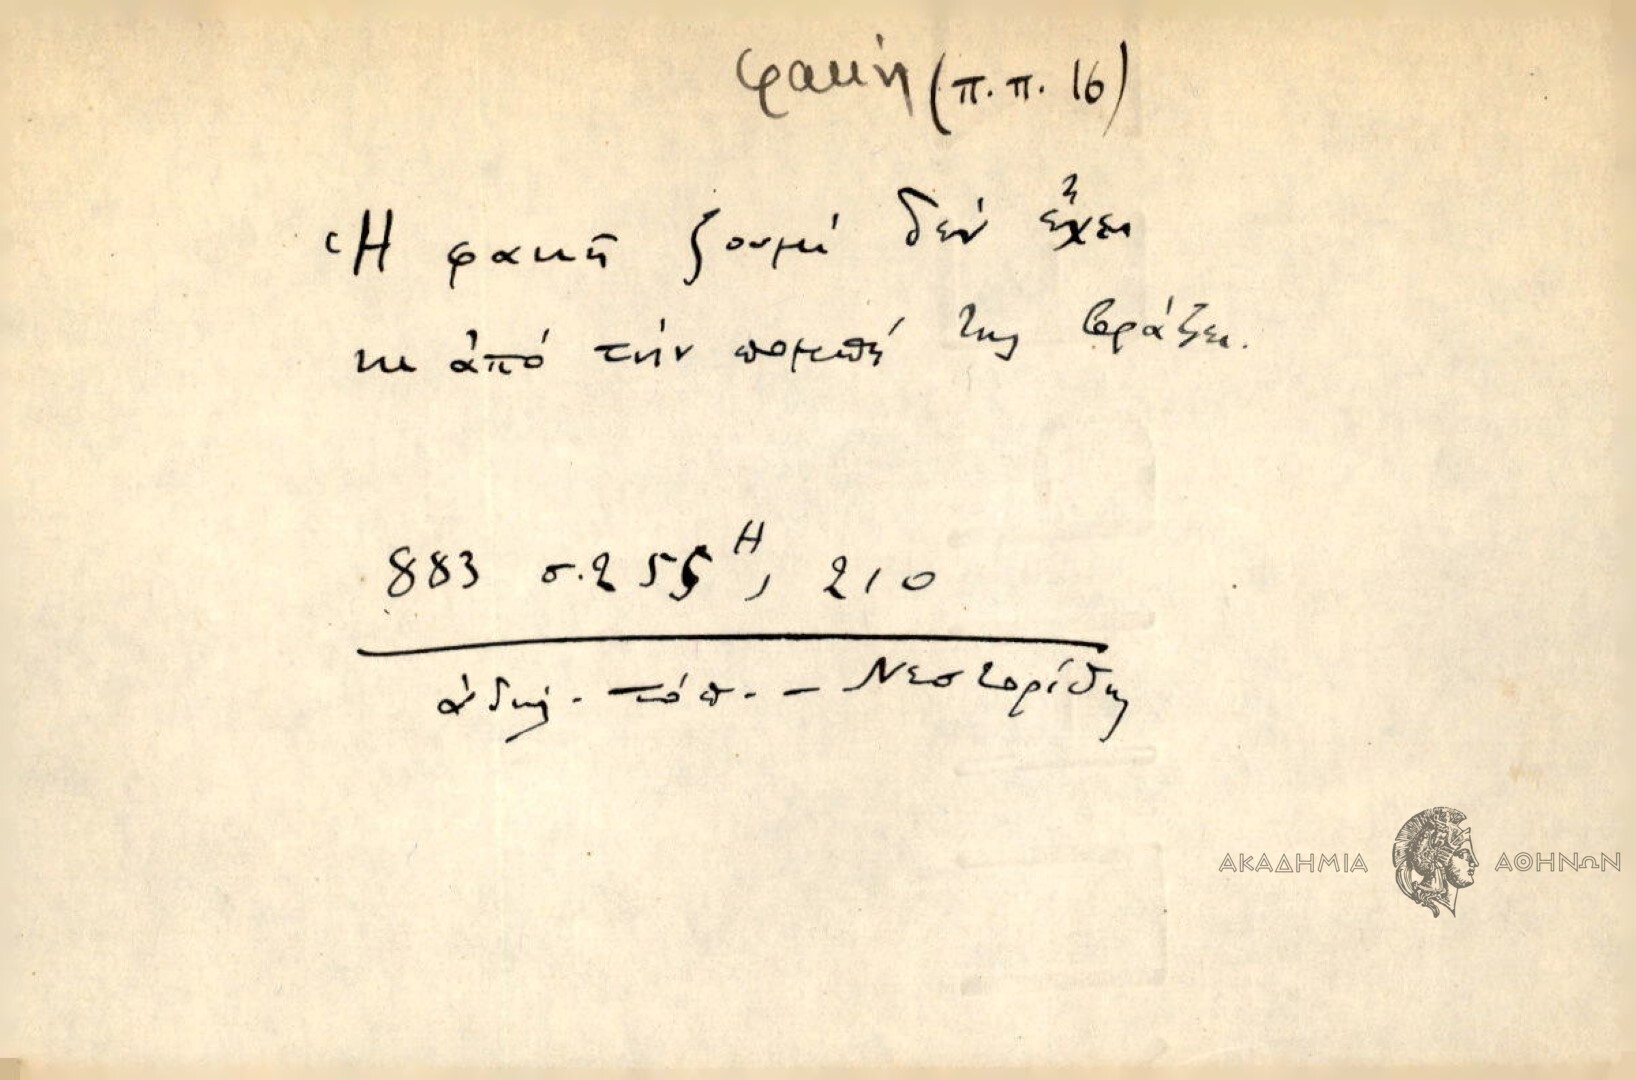 φακή (π.π. 16)
Ἡ φακῆ ζουμί δέν ἔχει
κι ἀπό τήν πομπή της βράζει.
883 σ. 255 Η, 210
ἀδήλ. τόπ. - Νεστορίδης
ΑΚΑΔΗΜΙΑ ΑΘΗΝΩΝ